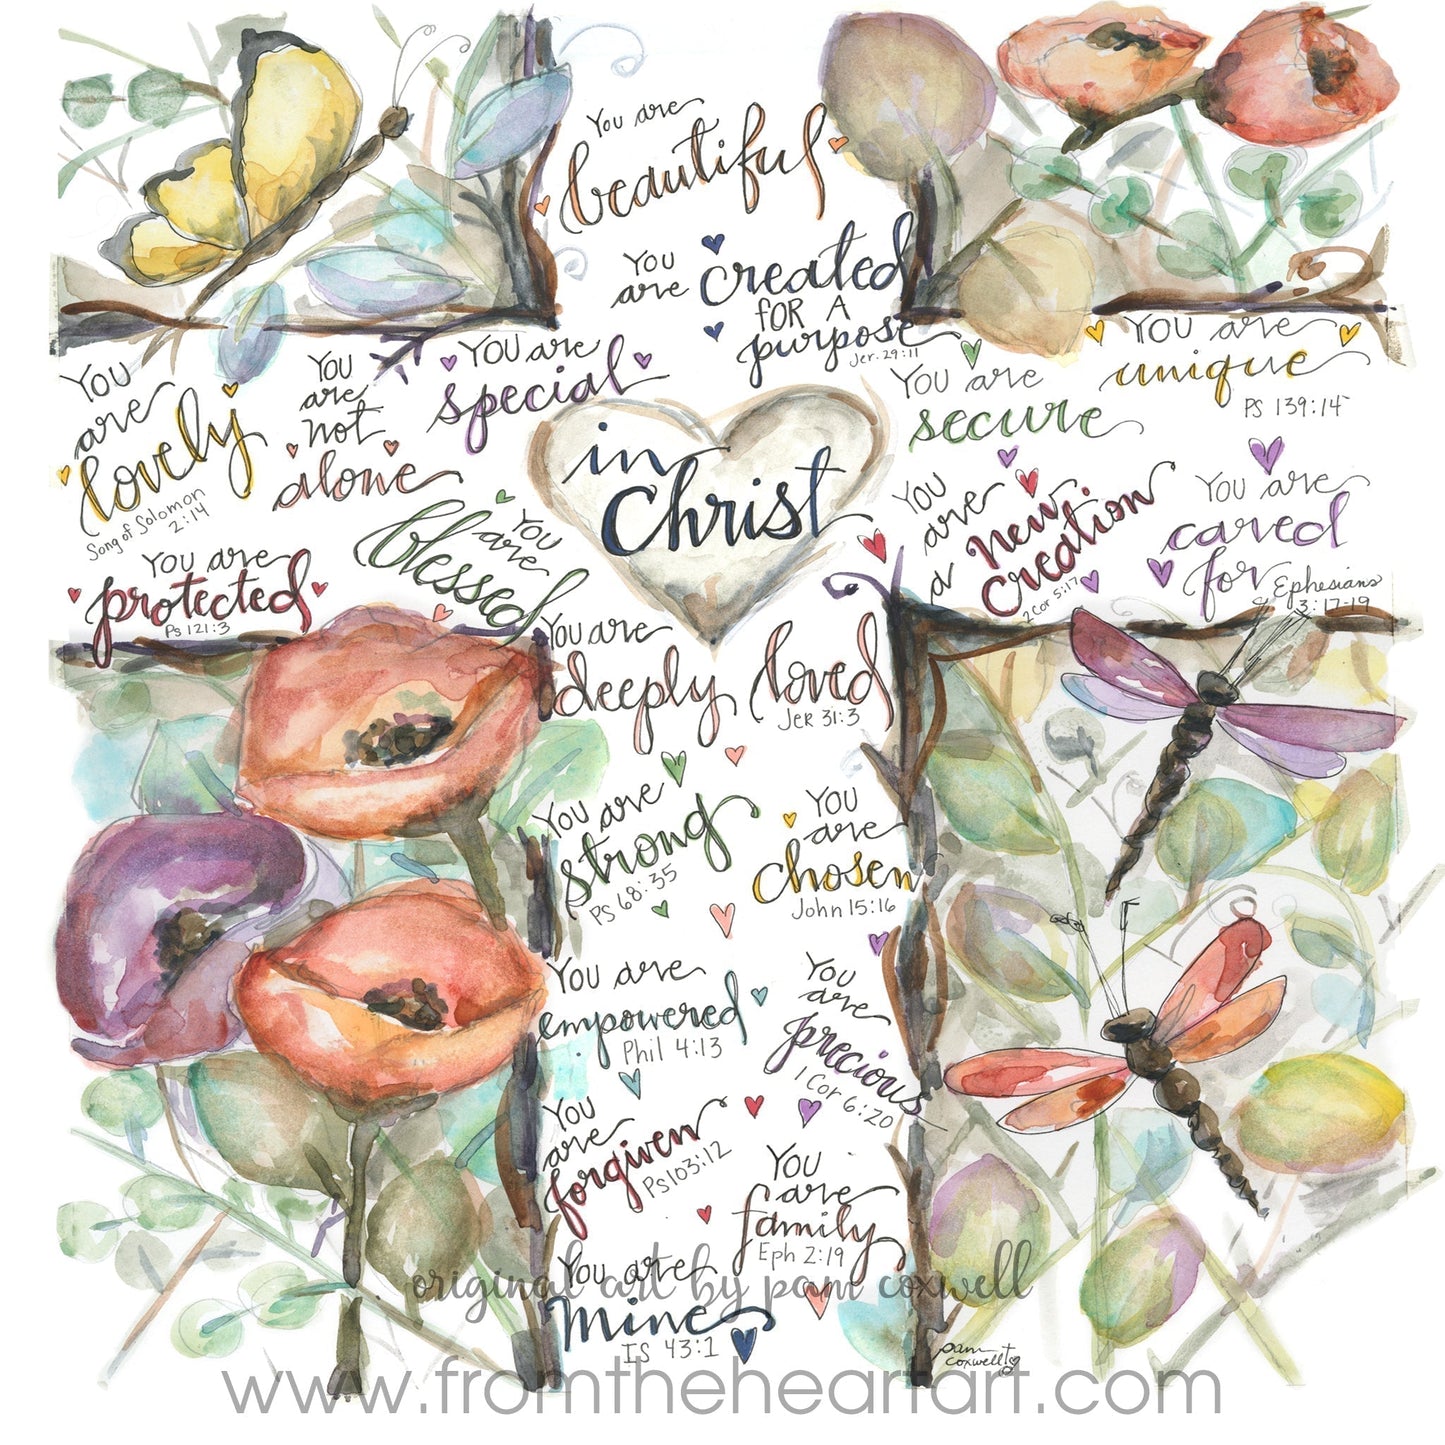 You are
beautiful
You are
created
FOR A
purpose
Jer. 29:11
You
are
lovely
Song of Solomon
2:14
You
are
not
alone
You are
special
You are
secure
You are
unique
PS 139:14
in
Christ
You are
protected
Ps 121:3
You
are
blessed
You
are
a new
creation
2 Cor 5:17
You are
cared
for
Ephesians
3:17-19
You are
deeply loved
Jer 31:3
You are
strong
Ps 68:35
You
are
chosen
John 15:16
You are
empowered
Phil 4:13
You
are
precious
1 Cor 6:20
You
are
forgiven
Ps 103:12
You
are
family
Eph 2:19
You are
mine
IS 43:1
original art by pam coxwell
pam
coxwell
www.fromtheheartart.com